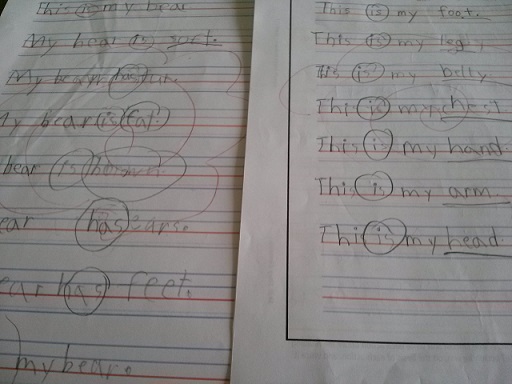 This is my bear
My bear is soft.
My bear has fur.
My bear is fat.
bear is brown.
ear has ears.
ear has feet.
my bear.
This is my foot.
This is my leg.
This is my belly
This is my chest
This is my hand.
This is my arm
This is my head.